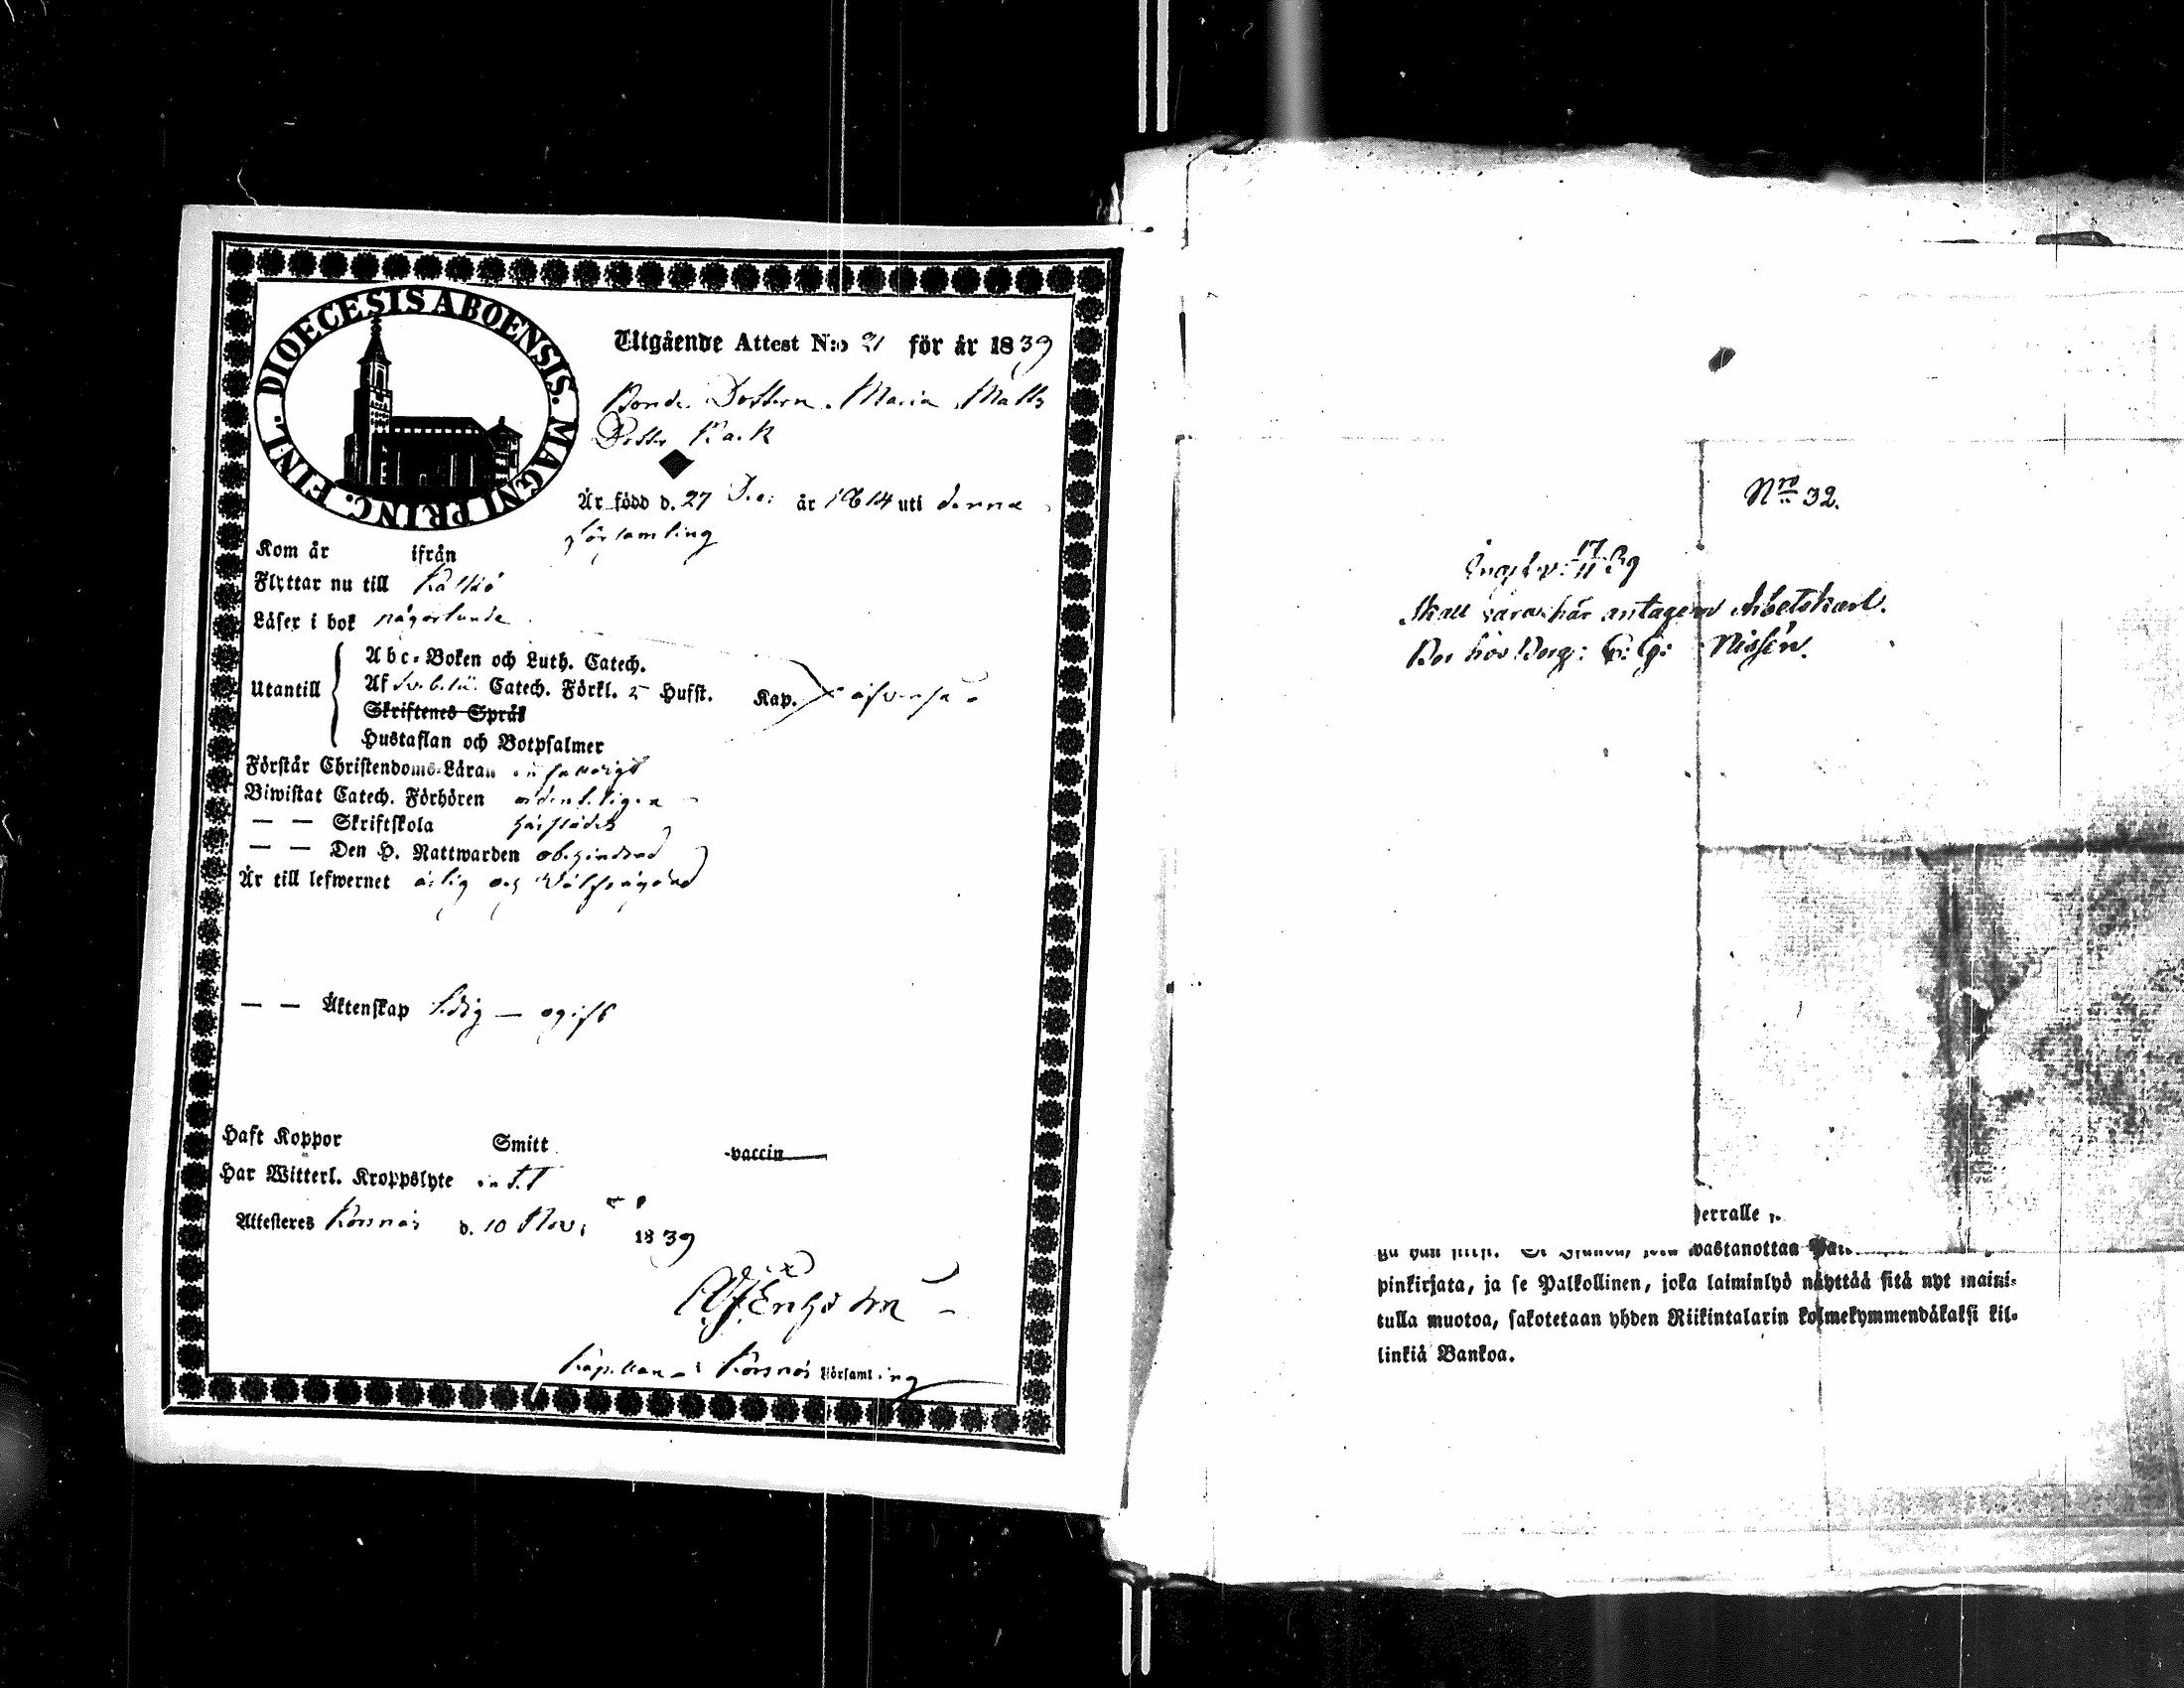 DIOECESIS ABOENSIS. MAGNI PRINC. FINL.
Utgående Attest N:o 21 för år 1839
Bonde Dottern Maria Matts
Dotter Back
Är född d. 27 Dec: år 1814 uti denna
församling
Kom år ifrån
Flyttar nu till
Läser i bok någorlunda
Utantill
Abc-Boken och Luth. Catech.
Af Svebelii Catech. Förkl. 5 Hufst. Kap.
Skriftenes Språk
Hustaflan och Botpsalmer
Förstår Christendoms-Läran enfaldigt
Biwistat Catech. Förhören ordentligen
— — Skriftskola härstädes
— — Den H. Nattwarden obehindrad
Är till lefwernet ärlig och Wälfrägdad
— — Äktenskap ledig — ogift
Haft Koppor Smitt vaccin
Har Witterl. Kroppslyte intet
Attesteres Korsnäs d. 10 Nov: 1839
Kapellan i Korsnäs församling
Nro 32.
Skall vara här antagen Arbetskarl.
Bor hos Borg: Nissén.
erralle
wastanottaa
pinkirjata, ja se Palkollinen, joka laiminlyö näyttää sitä nyt maini-
tulla muotoa, sakotetaan yhden Riikintalarin kolmekymmendäkaksi kil-
linkiä Bankoa.